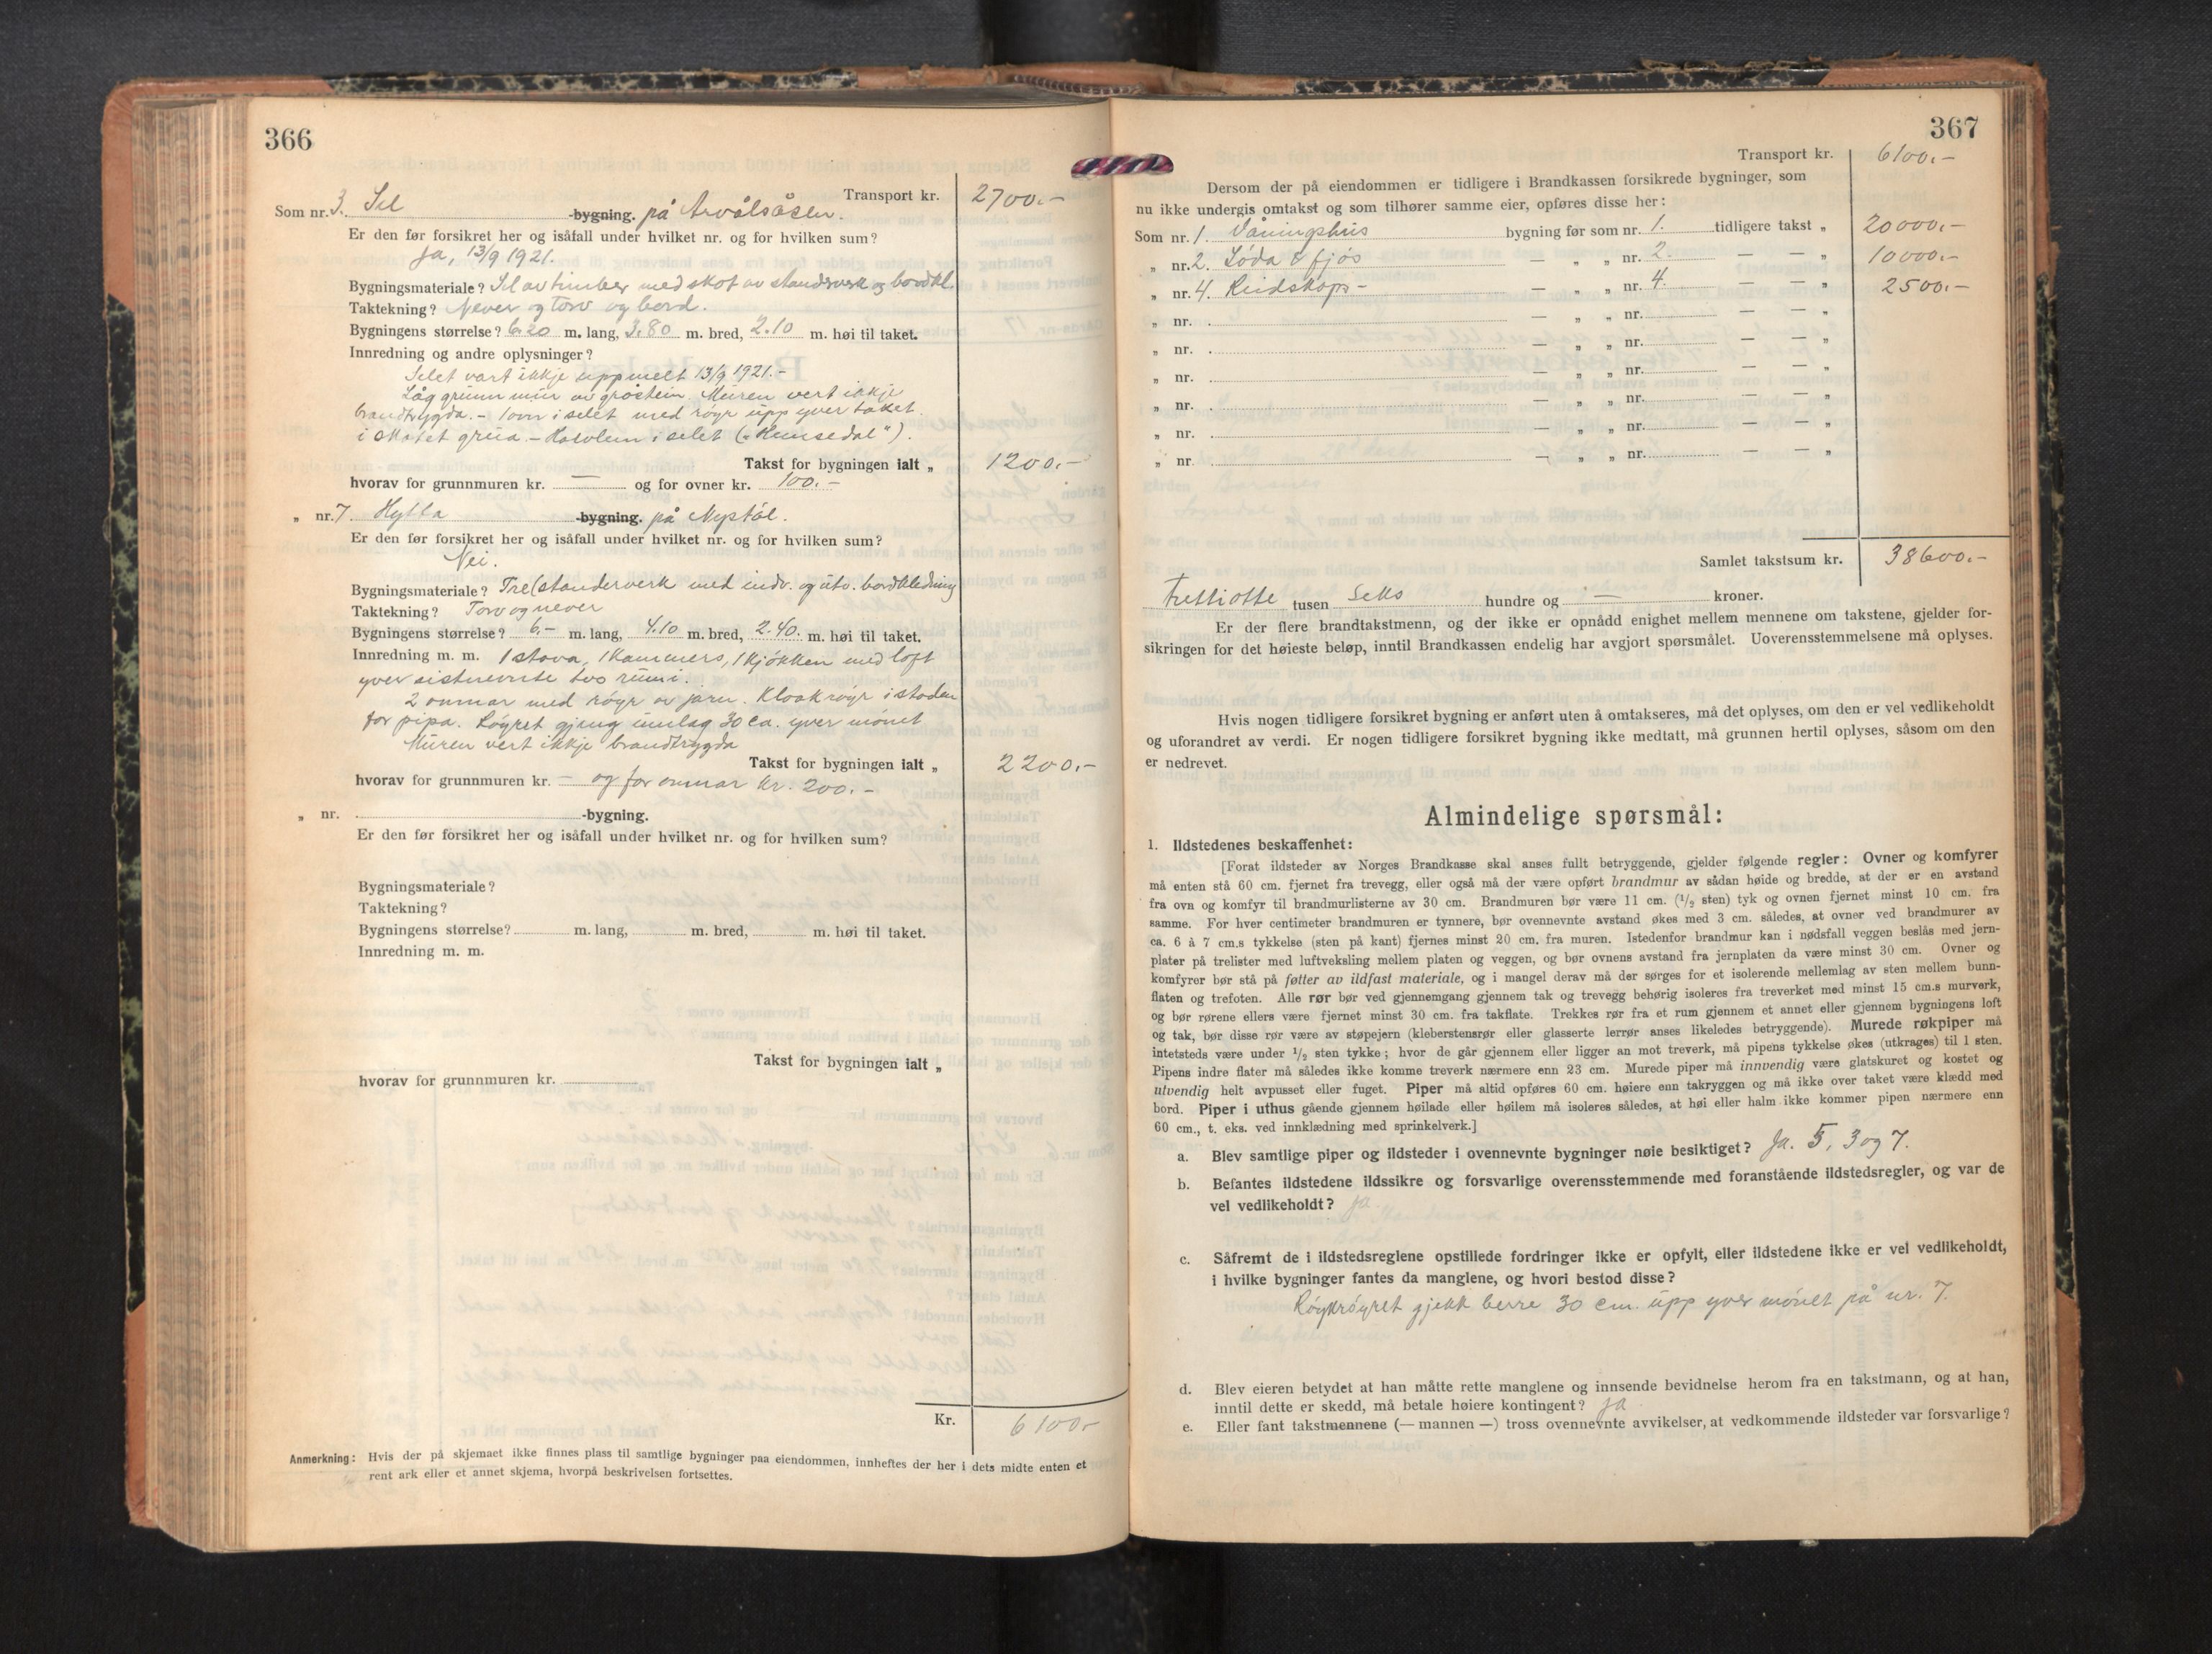 366
Transport kr. 2700.-
Som nr. 3. Sel -bygning. på Arvålsåsen.
Er den før forsikret her og isåfall under hvilket nr. og for hvilken sum?
Ja, 13/9 1921.
Bygningsmateriale? Sel av timber med skot av standsverk og bordkl.
Taktekning? Never og torv og bord.
Bygningens størrelse? 6.20 m. lang, 3.80 m. bred, 2.10 m. høi til taket.
Innredning og andre oplysninger?
Selet vart ikkje uppmelt 13/9 1921.-
Låg grunnmur av gråstein. Muren vert ikkje
brandtrygda. - 1 omn i selet med røyr upp yver taket.
i skotet grua. - i selet ("Hemsedal").
Takst for bygningen ialt „ 1200.-
hvorav for grunnmuren kr. — og for ovner kr. 100.-
„ nr. 7. Hytta -bygning. på Nystøl.
Er den før forsikret her og isåfall under hvilket nr. og for hvilken sum?
Nei.
Bygningsmateriale? Tre (standerverk med indv. og utv. bordkledning
Taktekning? Torv og never
Bygningens størrelse? 6.- m. lang, 4.10 m. bred, 2.40. m. høi til taket.
Innredning m. m. 1 stova, 1 kammers, 1 kjøkken med loft
yver sistnevnte tvo rumi.
2 omnar med røyr av jarn. Kloakrøyr i staden
for pipa. Røyret gjeng umlag 30 ca. yver mønet
Muren vert ikkje brandtrygda
Takst for bygningen ialt „ 2200.-
hvorav for grunnmuren kr. — og for omnar kr. 200.-
„ nr. -bygning.
Er den før forsikret her og isåfall under hvilket nr. og for hvilken sum?
Bygningsmateriale?
Taktekning?
Bygningens størrelse? m. lang, m. bred, m. høi til taket.
Innredning m. m.
Takst for bygningen ialt „
hvorav for grunnmuren kr.
Kr. 6100.-
Anmerkning: Hvis der på skjemaet ikke finnes plass til samtlige bygninger paa eiendommen, innheftes der her i dets midte enten et
rent ark eller et annet skjema, hvorpå beskrivelsen fortsettes.
367
Transport kr. 6100.-
Dersom der på eiendommen er tidligere i Brandkassen forsikrede bygninger, som
nu ikke undergis omtakst og som tilhører samme eier, opføres disse her:
Som nr. 1. Våningshus bygning før som nr. 1. tidligere takst „ 20000.-
„ nr. 2. Løda & fjøs — „ „ nr. 2. — — „ 10000.-
„ nr. 4. Reidskaps- — „ „ nr. 4. — — „ 2500.-
„ nr. — „ „ nr. — — „
„ nr. — „ „ nr. — — „
„ nr. — „ „ nr. — — „
„ nr. — „ „ nr. — — „
„ nr. — „ „ nr. — — „
„ nr. — „ „ nr. — — „
Samlet takstsum kr. 38600.-
Trettiotte tusen seks hundre og — kroner.
Er der flere brandtakstmenn, og der ikke er opnådd enighet mellem mennene om takstene, gjelder for-
sikringen for det høieste beløp, inntil Brandkassen endelig har avgjort spørsmålet. Uoverensstemmelsene må oplyses.
Hvis nogen tidligere forsikret bygning er anført uten å omtakseres, må det oplyses, om den er vel vedlikeholdt
og uforandret av verdi. Er nogen tidligere forsikret bygning ikke medtatt, må grunnen hertil oplyses, såsom om den
er nedrevet.
Almindelige spørsmål:
1. Ildstedenes beskaffenhet:
[Forat ildsteder av Norges Brandkasse skal anses fullt betryggende, gjelder følgende regler: Ovner og komfyrer
må enten stå 60 cm. fjernet fra trevegg, eller også må der være opført brandmur av sådan høide og bredde, at der er en avstand
fra ovn og komfyr til brandmurlisterne av 30 cm. Brandmuren bør være 11 cm. (1/2 sten) tyk og ovnen fjernet minst 10 cm. fra
samme. For hver centimeter brandmuren er tynnere, bør ovennevnte avstand økes med 3 cm. således, at ovner ved brandmurer av
ca. 6 à 7 cm.s tykkelse (sten på kant) fjernes minst 20 cm. fra muren. Istedenfor brandmur kan i nødsfall veggen beslås med jern-
plater på trelister med luftveksling mellem platen og veggen, og bør ovnens avstand fra jernplaten da være minst 30 cm. Ovner og
komfyrer bør stå på føtter av ildfast materiale, og i mangel derav må der sørges for et isolerende mellemlag av sten mellem bunn-
flaten og trefoten. Alle rør bør ved gjennemgang gjennem tak og trevegg behørig isoleres fra treverket med minst 15 cm.s murverk,
og bør rørene ellers være fjernet minst 30 cm. fra takflate. Trekkes rør fra et rum gjennem et annet eller gjennem bygningens loft
og tak, bør disse rør være av støpejern (kleberstensrør eller glasserte lerrør anses likeledes betryggende). Murede røkpiper må
intetsteds være under 1/2 sten tykke; hvor de går gjennem eller ligger an mot treverk, må pipens tykkelse økes (utkrages) til 1 sten.
Pipens indre flater må således ikke komme treverk nærmere enn 23 cm. Murede piper må innvendig være glatskuret og kostet og
utvendig helt avpusset eller fuget. Piper må altid opføres 60 cm. høiere enn takryggen og må ikke over taket være klædd med
bord. Piper i uthus gående gjennem høilade eller høilem må isoleres således, at høi eller halm ikke kommer pipen nærmere enn
60 cm., t. eks. ved innklædning med sprinkelverk.]
a. Blev samtlige piper og ildsteder i ovennevnte bygninger nøie besiktiget? Ja. 5, 3 og 7.
b. Befantes ildstedene ildssikre og forsvarlige overensstemmende med foranstående ildstedsregler, og var de
vel vedlikeholdt? ja.
c. Såfremt de i ildstedsreglene opstillede fordringer ikke er opfylt, eller ildstedene ikke er vel vedlikeholdt,
i hvilke bygninger fantes da manglene, og hvori bestod disse?
Røykrøyret gjekk berre 30 cm. upp yver mønet på nr. 7.
d. Blev eieren betydet at han måtte rette manglene og innsende bevidnelse herom fra en takstmann, og at han,
inntil dette er skedd, må betale høiere kontingent? ja
e. Eller fant takstmennene (— mannen —) tross ovennevnte avvikelser, at vedkommende ildsteder var forsvarlige?